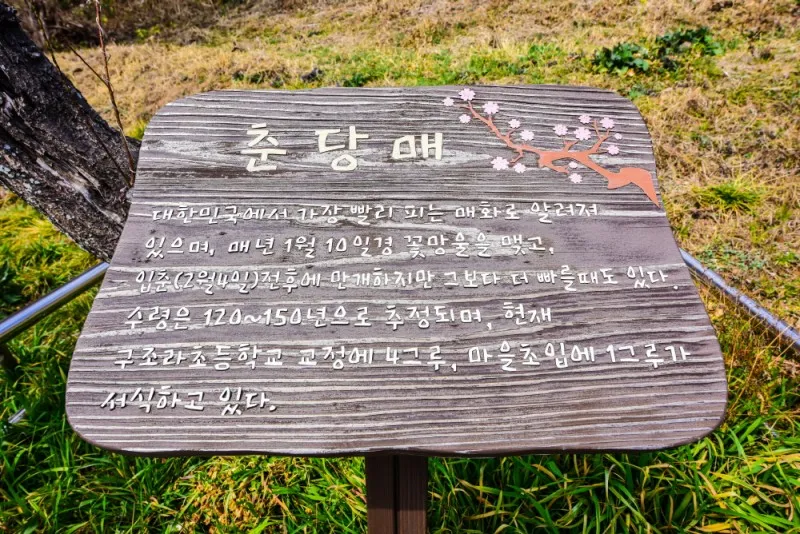 춘당매
대한민국에서 가장 빨리 피는 매화로 알려져
있으며, 매년 1월 10일경 꽃망울을 맺고,
입춘(2월4일)전후에 만개하지만 그보다 더 빠를때도 있다.
수령은 120~150년으로 추정되며, 현재
구조라초등학교 교정에 4그루, 마을초입에 1그루가
서식하고 있다.